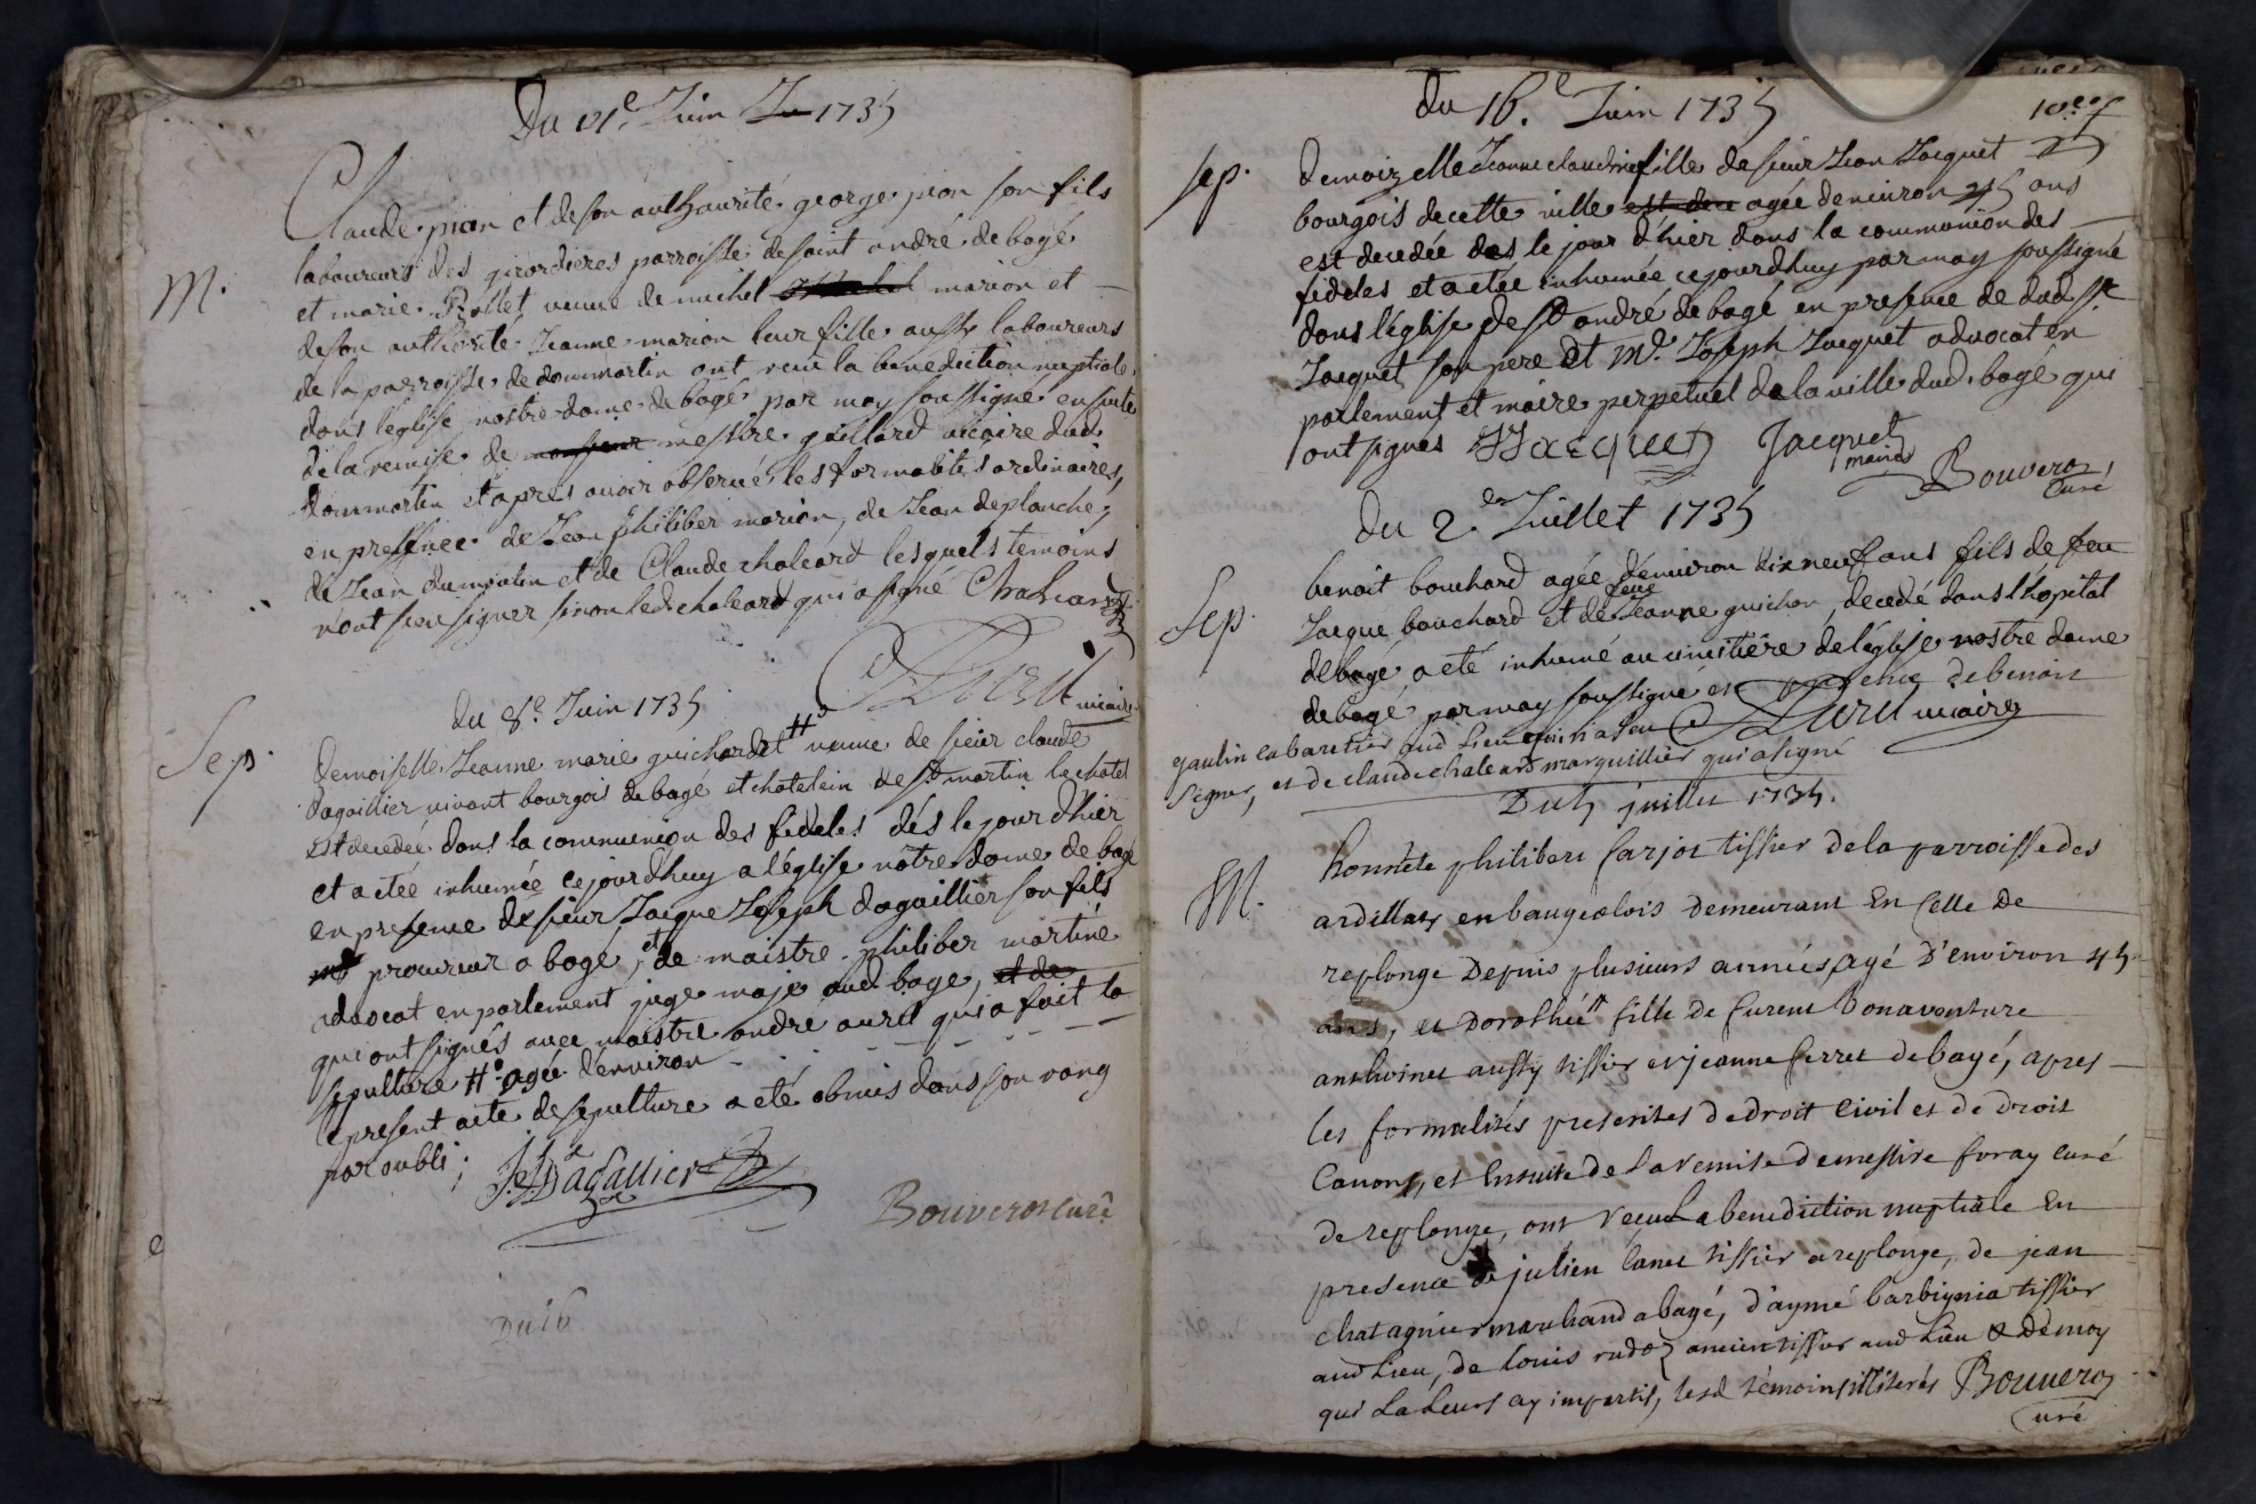 Du 21e. Juin 1735
M.
Claude pion et de son authaurité george pion son fils
laboureurs des girordieres parroisse de saint andré de bagé
et marie Rollet veuve de michel marion et
de son authorité Jeanne marion leur fille aussy laboureurs
de la parroisse de dommartin ont receu la benediction nuptiale
dans l'eglise nostre dame de bagé par moy soussigné ensuite
de la remise de monsieur messire guillard vicaire dud.
dommartin et apres avoir observé les formalités ordinaires,
en presence de Jean philiber marion, de Jean deplanche,
de Jean dumoulin et de Claude chaleard lesquels temoins
n'ont sceu signer sinon led. chaleard qui a signé Chaleard
vicaire
Sep.
du 8e. Juin 1735
Demoiselle Jeanne marie guichardet # veuve de sieur claude
dagaillier vivant bourgois de bagé et chatelein de st martin le chatel
est decedée dans la communion des fideles dés le jour d'hier
et a etée inhumée cejourdhuy a l'église nôtre dame de bagé
en presence de sieur Jacque Joseph dagaillier son fils
procureur a bagé, et de maistre philiber martiné
advocat en parlement juge maje aud. bage, et de
qui ont signés avec maistre andré auril qui a fait la
sepulture # agée d'environ
le present acte de sepulture a eté obmis dans son rang
par oubli;
J. J. Dagallier
Bouverot curé
Du 16
10e. f
du 16.e Juin 1735
sep.
demoizelle Jeanne claudine fille de sieur Jean Jacquet
bourgois de cette ville est dece agée denviron 25 ans
est decedée des le jour d'hier dans la communion des
fideles et a etée inhumée cejourdhuy par moy soussigné
dans l'église de st andré de bagé en presence de dud. sr
Jacquet son pere et Mr. Joseph Jacquet advocat en
parlement et maire perpetuel de la ville dud. bagé qui
ont signés JJacquet Jacquet
maire
Bouverot,
curé
du 2.e Juillet 1735
Sep.
benoit bouchard agée d'environ dix neuf ans fils de feu
Jacque bouchard et de feue Jeanne guichon, decedé dans l'hopital
de bagé a eté inhumé au cimitiére de l'église nostre dame
de bagé par moy soussigné en presence de benoit
vicaire
gaulin cabaretier aud. lieu qui n'a sceu
signer, et de claude chaleard marguillier qui a signé
Du 5 juillet 1735.
M.
honnéte philibert farjot tissier de la parroisse des
ardillats en baugeolois demeurant En celle De
replonge Depuis plusieurs années, agé D'environ 45
ans, et Dorothée fille de furent Bonaventure
anthoinet aussy tissier et jeanne ferret de bagé, apres
les formalités prescrites de droit Civil et de Droit
Canons, et Ensuite de La remise de messire foray curé
de replonge, ont receu La benediction nuptiale En
presence de julien Canet tissier a replonge, de jean
chatagnier marchand a bagé, d'aymé barbignia tissier
aud. Lieu, de Louis rudoz ancien tissier aud. Lieu & De moy
qui La Leurs ay impartis, lesd. témoins illiterés Bouverot
curé